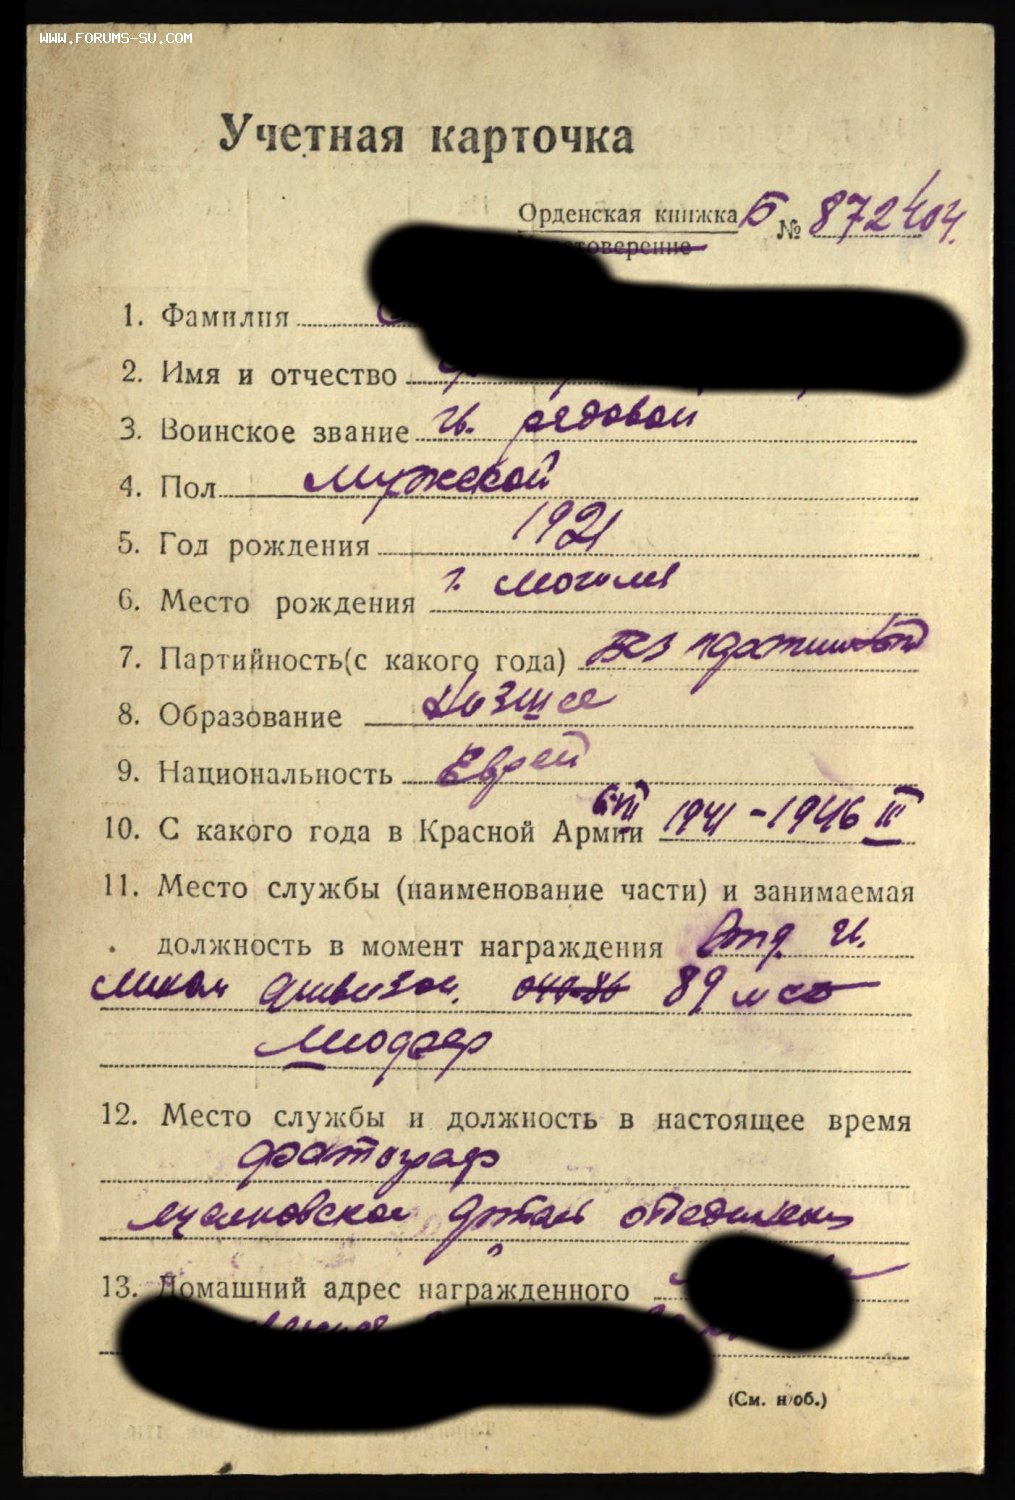 WWW.FORUMS-SU.COM
Учетная карточка
Орденская книжка Б № 872404.
1. Фамилия
2. Имя и отчество
3. Воинское звание гв. рядовой
4. Пол мужской
5. Год рождения 1921
6. Место рождения г. Могилев
7. Партийность(с какого года) Без партийный
8. Образование Низшее
9. Национальность Еврей
10. С какого года в Красной Армии 1941-1946 III
11. Место службы (наименование части) и занимаемая
должность в момент награждения Отд. гв.
дивизон. 89
шофер
12. Место службы и должность в настоящее время
фотограф
13. Домашний адрес награжденного
(См. н/об.)